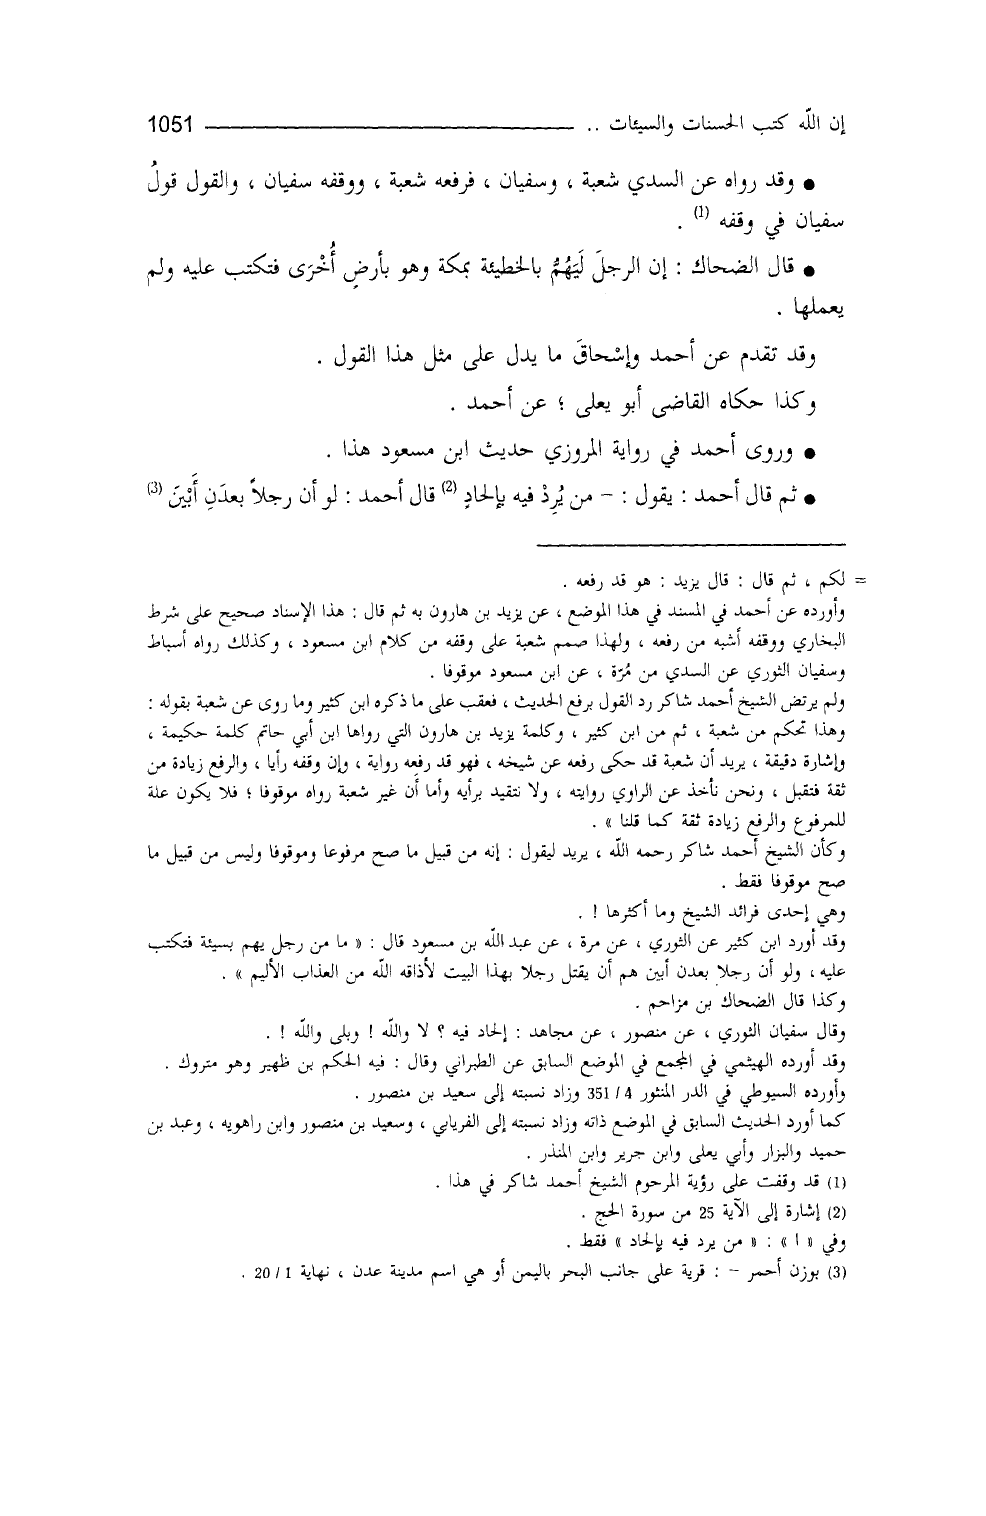 إن الله كتب الحسنات والسيئات .. 1051
● وقد رواه عن السدي شعبة ، وسفيان ، فرفعه شعبة ، ووقفه سفيان ، والقول قولُ
سفيان في وقفه (1) .
● قال الضحاك : إن الرجلَ لَيَهُمُّ بالخطيئة بمكة وهو بأرضٍ أُخْرَى فتكتب عليه ولم
يعملها .
وقد تقدم عن أحمد وإسْحاقَ ما يدل على مثل هذا القول .
وكذا حكاه القاضى أبو يعلى ؛ عن أحمد .
● وروى أحمد في رواية المروزي حديث ابن مسعود هذا .
● ثم قال أحمد : يقول : – من يُرِدْ فيه بإلحادٍ (2) قال أحمد : لو أن رجلاً بعدَنِ أَبْيَنَ (3)
= لكم ، ثم قال : قال يزيد : هو قد رفعه .
وأورده عن أحمد في المسند في هذا الموضع ، عن يزيد بن هارون به ثم قال : هذا الإسناد صحيح على شرط
البخاري ووقفه أشبه من رفعه ، ولهذا صمم شعبة على وقفه من كلام ابن مسعود ، وكذلك رواه أسباط
وسفيان الثوري عن السدي من مُرّة ، عن ابن مسعود موقوفا .
ولم يرتض الشيخ أحمد شاكر رد القول برفع الحديث ، فعقب على ما ذكره ابن كثير وما روى عن شعبة بقوله :
وهذا تحكم من شعبة ، ثم من ابن كثير ، وكلمة يزيد بن هارون التي رواها ابن أبي حاتم كلمة حكيمة ،
وإشارة دقيقة ، يريد أن شعبة قد حكى رفعه عن شيخه ، فهو قد رفعه رواية ، وإن وقفه رأيا ، والرفع زيادة من
ثقة فتقبل ، ونحن نأخذ عن الراوي روايته ، ولا نتقيد برأيه وأما أن غير شعبة رواه موقوفا ؛ فلا يكون علة
للمرفوع والرفع زيادة ثقة كما قلنا » .
وكأن الشيخ أحمد شاكر رحمه الله ، يريد ليقول : إنه من قبيل ما صح مرفوعا وموقوفا وليس من قبيل ما
صح موقوفا فقط .
وهي إحدى فرائد الشيخ وما أكثرها ! .
وقد أورد ابن كثير عن الثوري ، عن مرة ، عن عبد الله بن مسعود قال : « ما من رجل يهم بسيئة فتكتب
عليه ، ولو أن رجلا بعدن أبين هم أن يقتل رجلا بهذا البيت لأذاقه الله من العذاب الأليم » .
وكذا قال الضحاك بن مزاحم .
وقال سفيان الثوري ، عن منصور ، عن مجاهد : إلحاد فيه ؟ لا والله ! وبلى والله ! .
وقد أورده الهيثمي في المجمع في الموضع السابق عن الطبراني وقال : فيه الحكم بن ظهير وهو متروك .
وأورده السيوطي في الدر المنثور 4 / 351 وزاد نسبته إلى سعيد بن منصور .
كما أورد الحديث السابق في الموضع ذاته وزاد نسبته إلى الفريابي ، وسعيد بن منصور وابن راهويه ، وعبد بن
حميد والبزار وأبي يعلى وابن جرير وابن المنذر .
(1) قد وقفت على رؤية المرحوم الشيخ أحمد شاكر في هذا .
(2) إشارة إلى الآية 25 من سورة الحج .
وفي « ا » : « من يرد فيه بإلحاد » فقط .
(3) بوزن أحمر – : قرية على جانب البحر باليمن أو هي اسم مدينة عدن ، نهاية 1 / 20 .